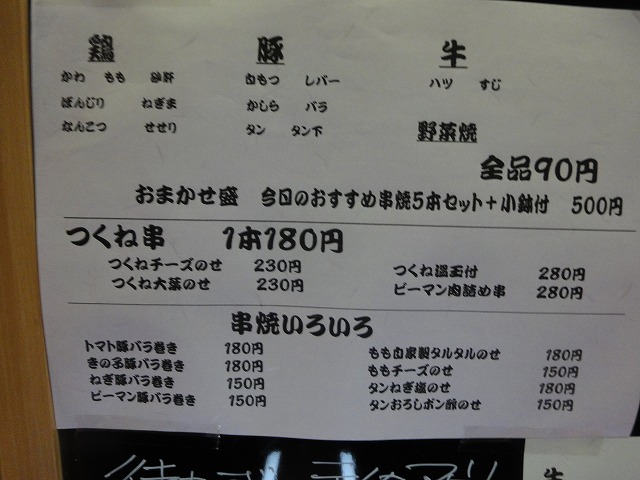 鶏 豚 牛
かわ もも 砂肝 白もつ レバー ハツ すじ
ぼんじり ねぎま かしら バラ
なんこつ せせり タン タン下 野菜焼
全品90円
おまかせ盛 今日のおすすめ串焼5本セット+小鉢付 500円
つくね串 1本180円
つくねチーズのせ 230円 つくね温玉付 280円
つくね大葉のせ 230円 ピーマン肉詰め串 280円
串焼いろいろ
トマト豚バラ巻き 180円 もも自家製タルタルのせ 180円
きの子豚バラ巻き 180円 ももチーズのせ 150円
ねぎ豚バラ巻き 150円 タンねぎ塩のせ 180円
ピーマン豚バラ巻き 150円 タンおろしポン酢のせ 150円